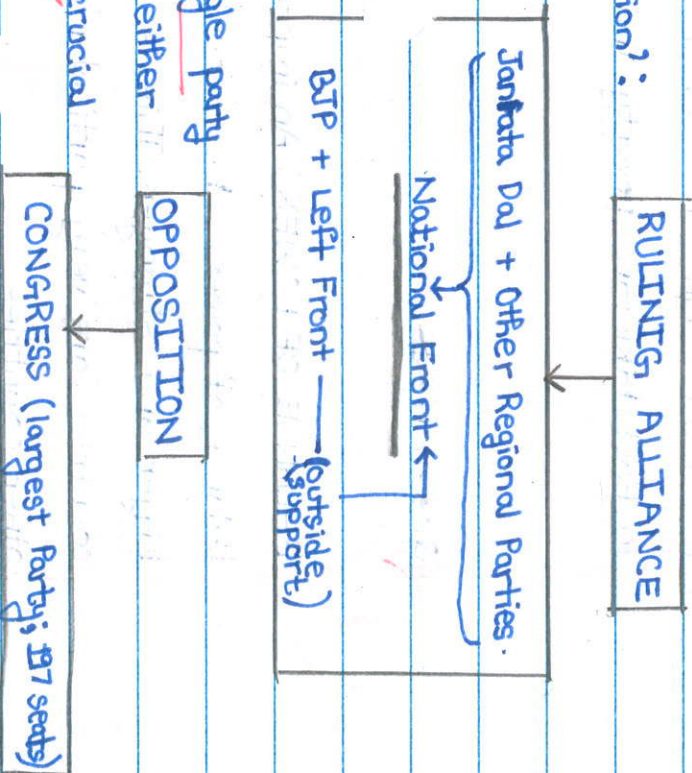 ion?:
RULINIG ALLIANCE
Jantata Dal + Other Regional Parties.
National Front
BJP + Left Front — (outside
support)
gle party
either
OPPOSITION
crucial
CONGRESS (largest Party; 197 seats)